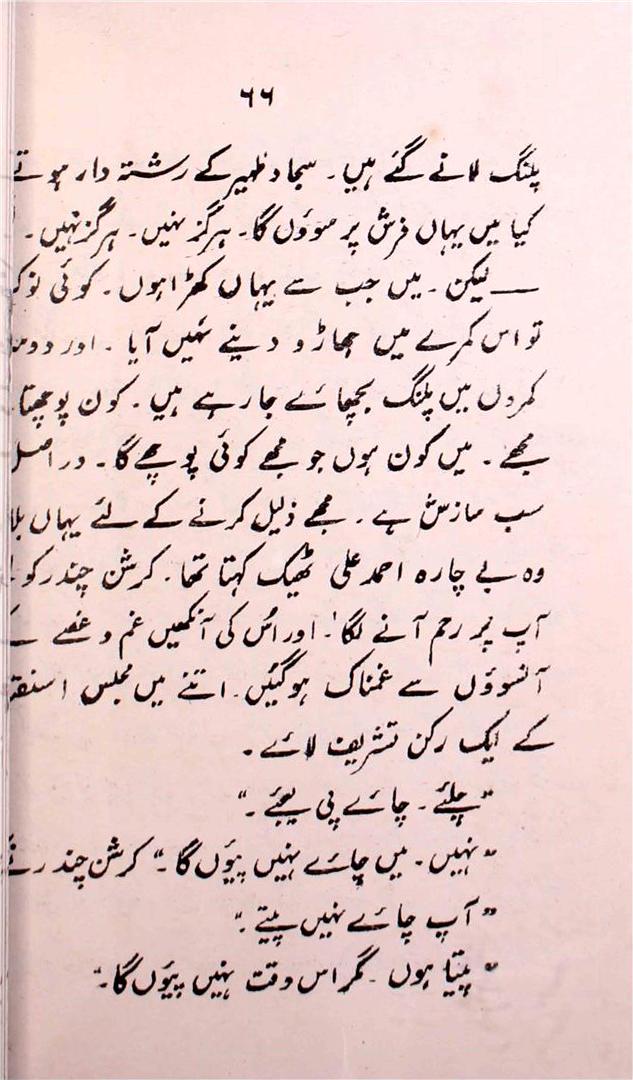 ۶۶
پلنگ لانے گئے ہیں۔ سجاد ظہیر کے رشتہ دار ہوتے
کیا میں یہاں فرش پر سوؤں گا۔ ہرگز نہیں۔ ہرگز نہیں۔
— لیکن۔ میں جب سے یہاں کھڑا ہوں۔ کوئی نوکر
تو اس کمرے میں جھاڑو دینے نہیں آیا۔ اور
کمروں میں پلنگ بچھائے جا رہے ہیں۔ کون پوچھتا
مجھے۔ میں کون ہوں جو مجھے کوئی پوچھے گا۔ دراصل
سب سازش ہے۔ مجھے ذلیل کرنے کے لئے یہاں
وہ بے چارہ احمد علی ٹھیک کہتا تھا۔ کرشن چندر کو
آپ پر رحم آنے لگا۔ اور اُس کی آنکھیں غم و غصے
آنسوؤں سے غمناک ہوگئیں۔ اتنے میں مجلس
کے ایک رکن تشریف لائے۔
"چلئے۔ چائے پی لیجئے۔"
"نہیں۔ میں چائے نہیں پیوں گا۔" کرشن چندر نے
"آپ چائے نہیں پیتے۔"
"پیتا ہوں۔ مگر اس وقت نہیں پیوں گا۔"